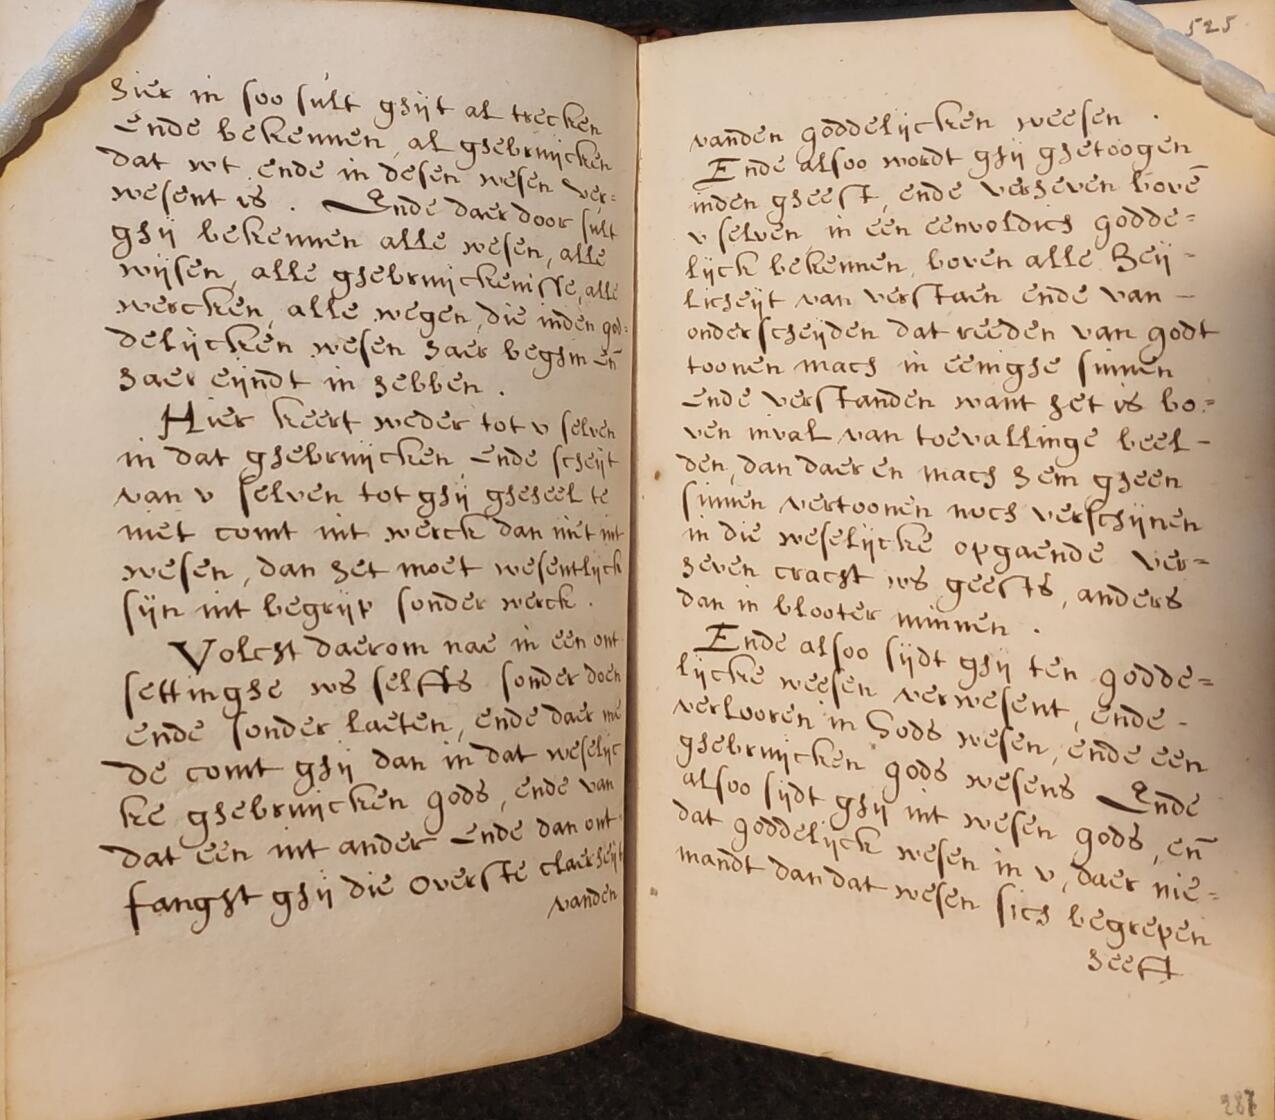 hier in soo sult ghijt al trecken
ende bekennen, al ghebruijcken
dat wt ende in desen wesen ver=
wesent is . Ende daer door sult
ghij bekennen alle wesen, alle
wijsen, alle ghebruijckenisse, alle
wercken, alle wegen, die inden god=
delijcken wesen haer beghin en̄
haer eijndt in hebben .
Hier keert weder tot v selven
in dat ghebruijcken, ende scheijt
van v selven tot ghij gheheel te
niet comt int werck dan niet int
wesen, dan het moet wesentlijck
sijn int begrijp sonder werck .
Volcht daerom nae in een ont
settinghe ws selffs sonder doen
ende sonder laeten, ende daer me
de comt ghij dan in dat weselijc
ke ghebruijcken gods, ende van
dat een int ander ende dan ont
fanght ghij die overste claerheijt
vanden
525
vanden goddelijcken weesen .
Ende alsoo wordt ghij ghetoogen
inden gheest, ende verheven bovē
v selven in een eenvoldich godde=
lijck bekennen, boven alle heij-
licheijt van verstaen ende van -
onderscheijden dat reeden van godt
toonen mach in eenighe sinnen
ende verstanden want het is bo=
ven inval van toevallinge beel-
den, dan daer en mach hem gheen
sinnen vertoonen noch verschijnen
in die weselijcke opgaende ver=
heven cracht ws geests, anders
dan in blooter minnen .
Ende alsoo sijdt ghij ten godde=
lijcke weesen verwesent, ende -
verlooren in Gods wesen, ende een
ghebruijcken gods wesens Ende
alsoo sijdt ghij int wesen gods, en̄
dat goddelijck wesen in v, daer nie=
mandt dan dat wesen sich begrepen
heeft
287